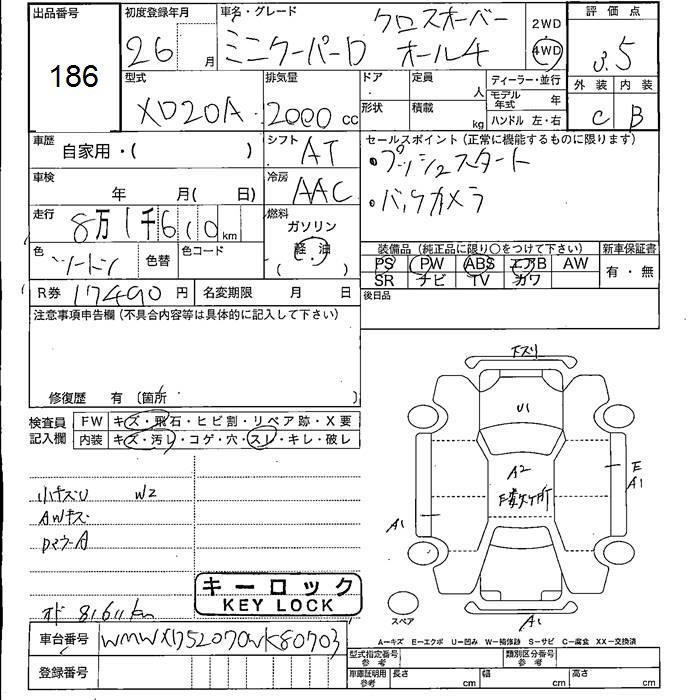 出品番号 186
初度登録年月 26 月
車名・グレード ミニクーパーD クロスオーバー オール4
2WD 4WD
評価点 3.5
型式 XD20A
排気量 2000 cc
ドア 定員 人
形状 積載 kg
ディーラー・並行
モデル年式 年
ハンドル 左・右
外装 内装
C B
車歴 自家用・( )
シフト AT
セールスポイント (正常に機能するものに限ります)
・プッシュスタート
・バックカメラ
車検 年 月( 日)
冷房 AAC
走行 8万1千610 km
燃料 ガソリン
軽油
( )
色 ツートン 色替 色コード
装備品 (純正品に限り○をつけて下さい) 新車保証書
PS PW ABS エアB AW 有・無
SR ナビ TV カワ
R券 17490 円 名変期限 月 日
後日品
注意事項申告欄 (不具合内容等は具体的に記入して下さい)
修復歴 有 〔箇所 〕
検査員記入欄
FW キズ・飛石・ヒビ割・リペア跡・X要
内装 キズ・汚レ・コゲ・穴・スレ・キレ・破レ
小キズU W2
AWキズ
下スリ
U1
A2
E
A1
A1
A1
キーロック
KEY LOCK
スペア
A-キズ E-エクボ U-凹み W-補修跡 S-サビ C-腐食 XX-交換済
車台番号 WMWXD752070WK80703
型式指定番号 参考 類別区分番号 参考
登録番号
車庫証明用 参考 長さ cm 幅 cm 高さ cm